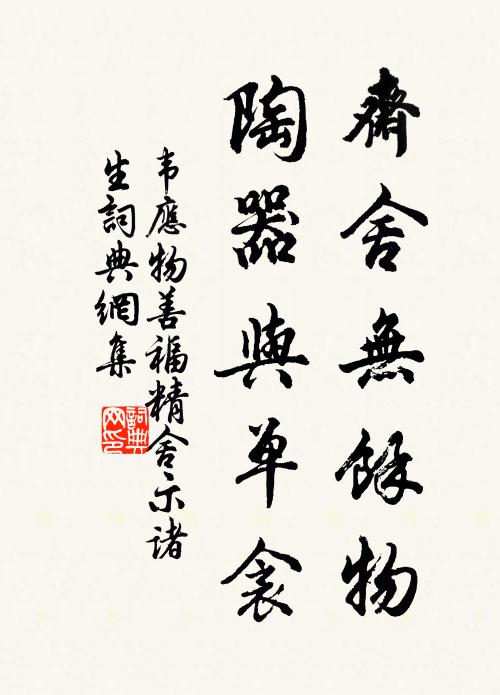 齋舍無餘物
陶器與单衾
韦應物善福精舍示诸
生詞典網集
詞典
网印